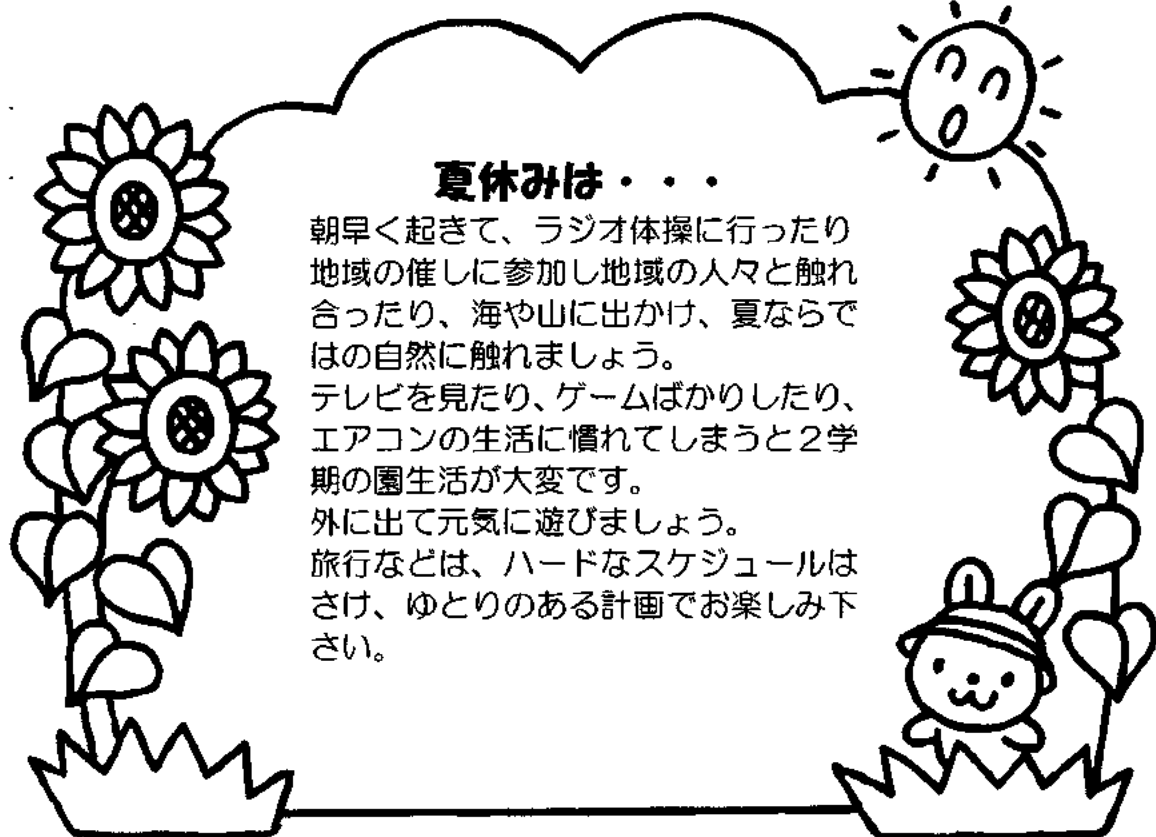 夏休みは・・・
朝早く起きて、ラジオ体操に行ったり
地域の催しに参加し地域の人々と触れ
合ったり、海や山に出かけ、夏ならで
はの自然に触れましょう。
テレビを見たり、ゲームばかりしたり、
エアコンの生活に慣れてしまうと２学
期の園生活が大変です。
外に出て元気に遊びましょう。
旅行などは、ハードなスケジュールは
さけ、ゆとりのある計画でお楽しみ下
さい。